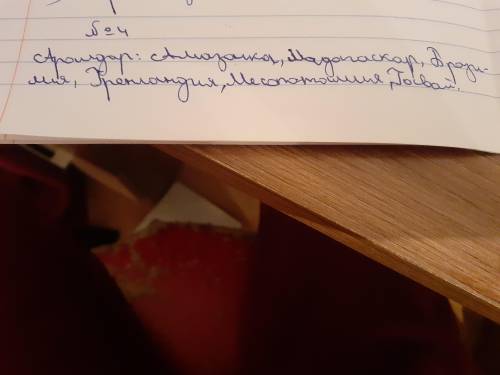 №4
Аромдар: Амазонка, Мадагаскар, Брази-
лия, Гренландия, Месопотамия, Гавай.